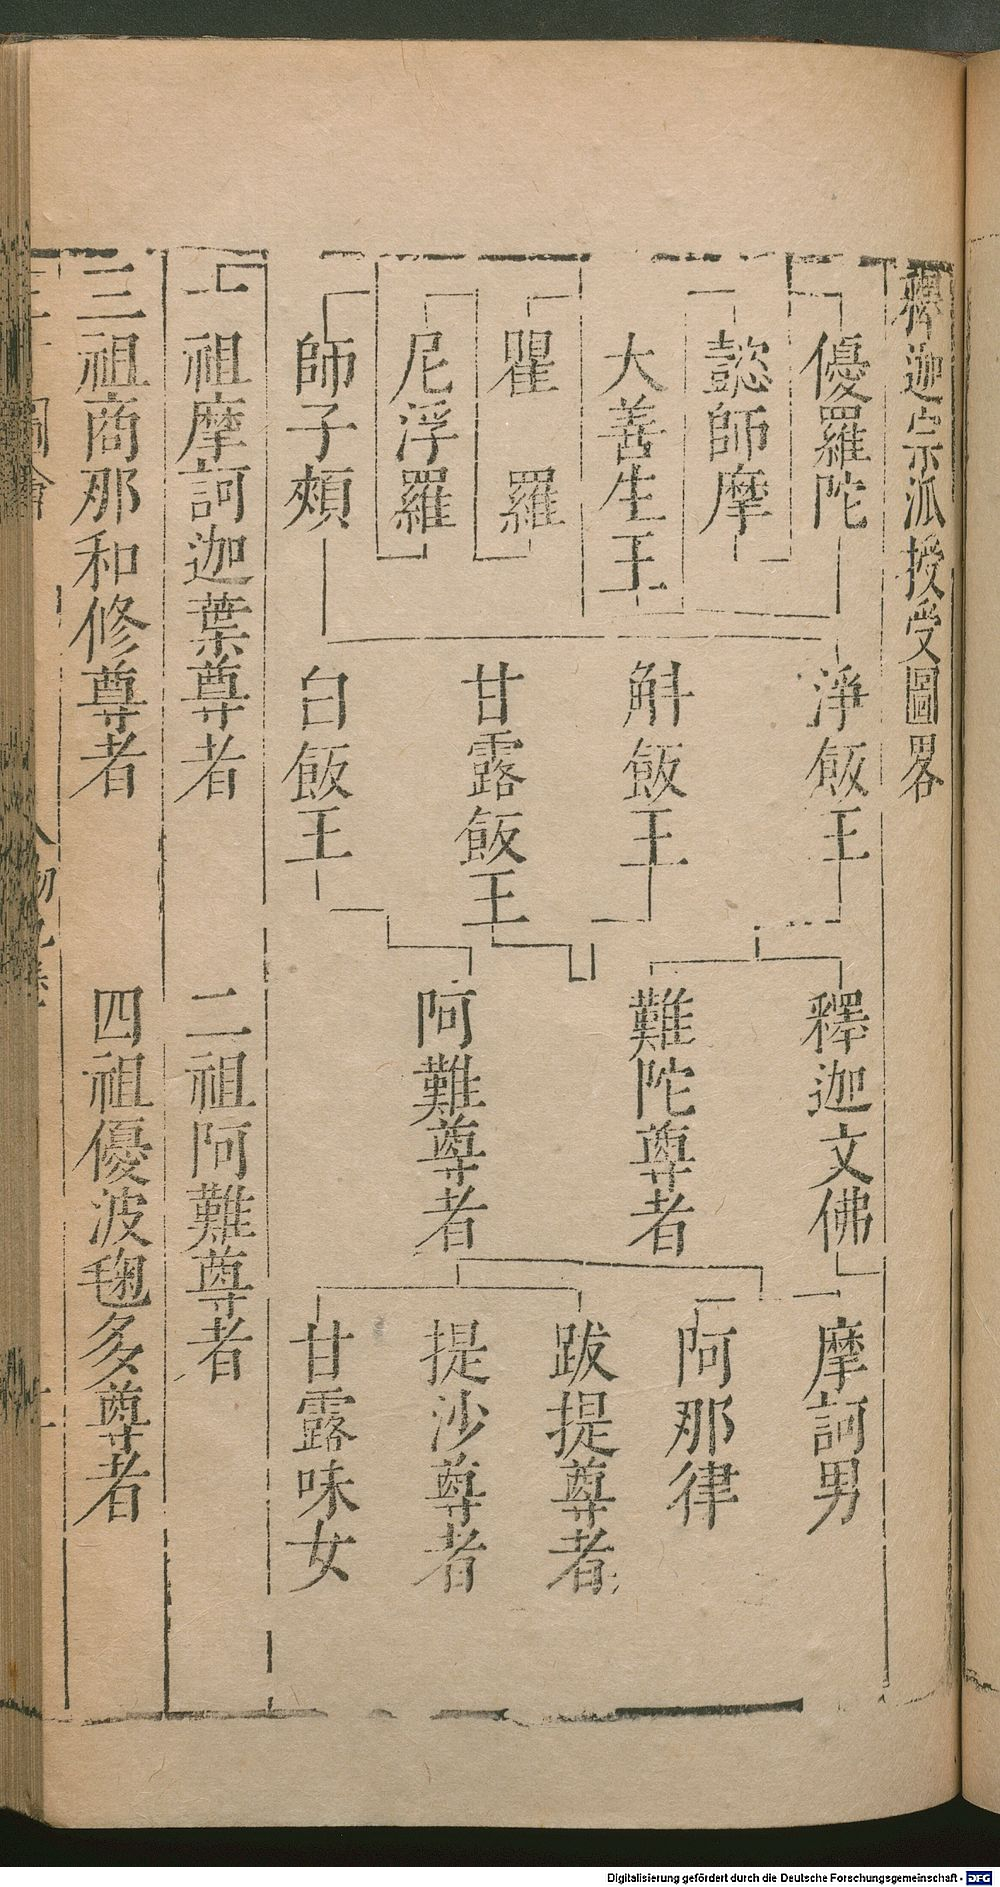 釋迦宗派授受圖畧
優羅陀
懿師摩
大善生王
瞿羅
尼浮羅
師子頰
淨飯王
斛飯王
甘露飯王
白飯王
釋迦文佛
難陀尊者
阿難尊者
摩訶男
阿那律
跋提尊者
提沙尊者
甘露味女
一祖摩訶迦葉尊者
二祖阿難尊者
三祖商那和修尊者
四祖優波毱多尊者
Digitalisierung gefördert durch die Deutsche Forschungsgemeinschaft - DFG